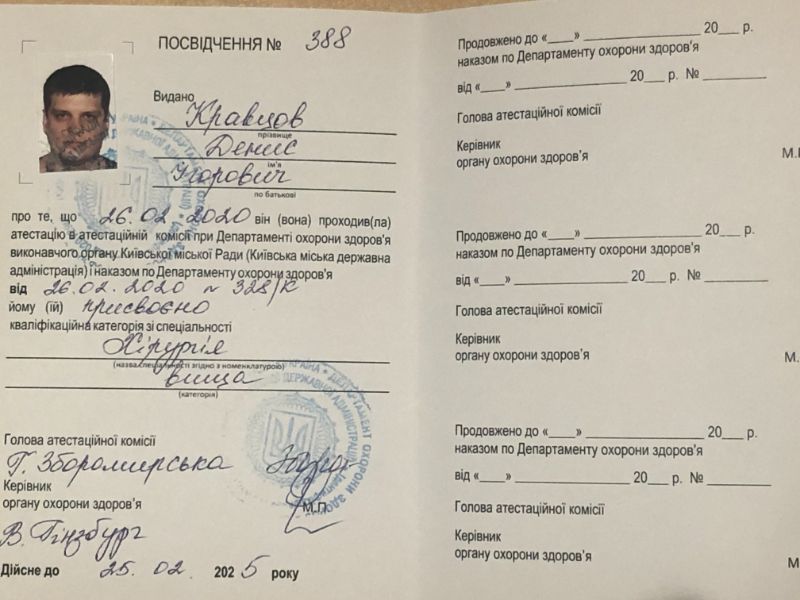 ПОСВІДЧЕННЯ № 388
Видано Кравцов
прізвище
Денис
ім'я
Ігорович
по батькові
про те, що 26.02 2020 він (вона) проходив(ла)
атестацію в атестаційній комісії при Департаменті охорони здоров'я
виконавчого органу Київської міської Ради (Київська міська державна
адміністрація) і наказом по Департаменту охорони здоров'я
від 26.02.2020 № 328/К
йому (їй) присвоєно
кваліфікаційна категорія зі спеціальності
Хірургія
(назва спеціальності згідно з номенклатурою)
вища
(категорія)
Голова атестаційної комісії
Г. Зборомирська
Керівник
органу охорони здоров'я
М.П.
В. Гінзбург
Дійсне до 25.02 2025 року
Продовжено до «___» ______ 20___ р.
наказом по Департаменту охорони здоров'я
від «___» ______ 20___ р. № ______
Голова атестаційної комісії
Керівник
органу охорони здоров'я
М.
Продовжено до «___» ______ 20___ р.
наказом по Департаменту охорони здоров'я
від «___» ______ 20___ р. № ______
Голова атестаційної комісії
Керівник
органу охорони здоров'я
М.
Продовжено до «___» ______ 20___ р.
наказом по Департаменту охорони здоров'я
від «___» ______ 20___ р. № ______
Голова атестаційної комісії
Керівник
органу охорони здоров'я
М.